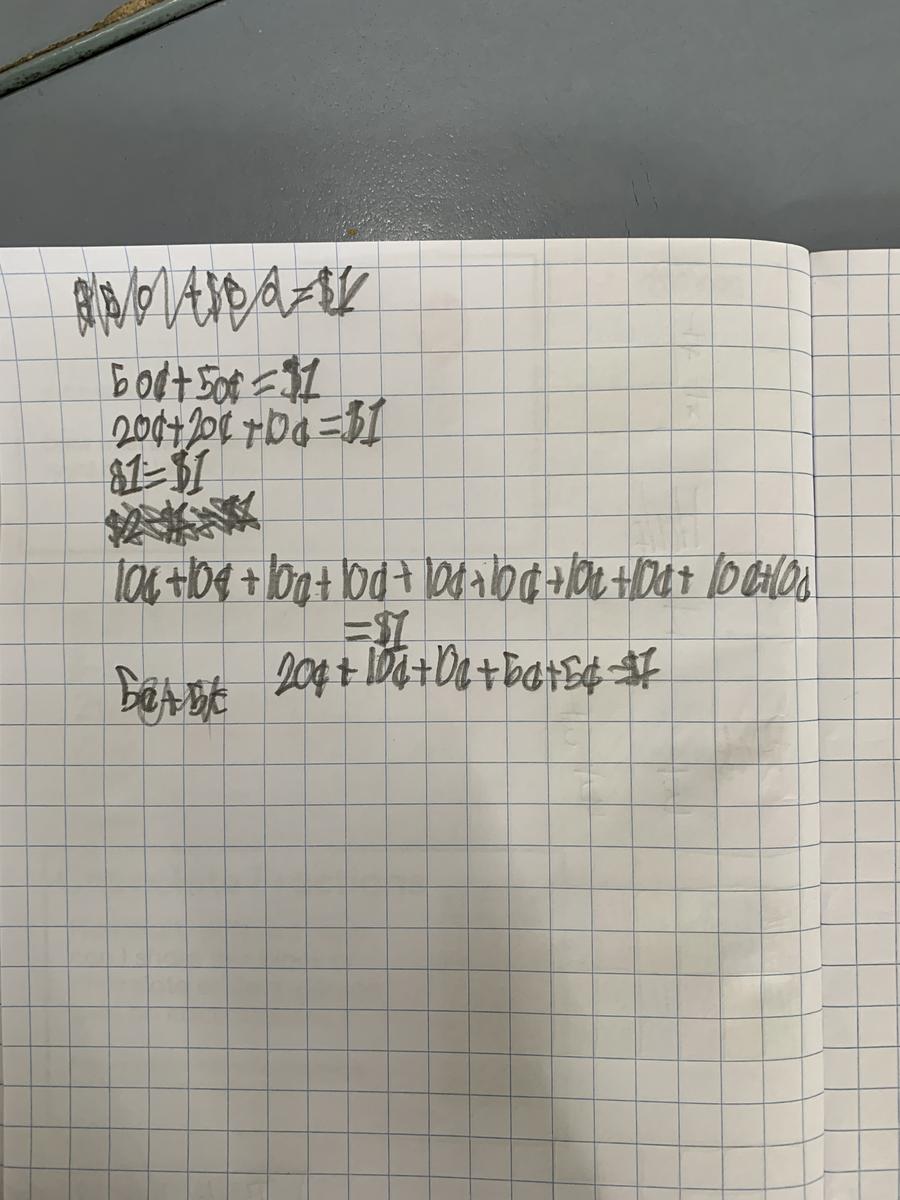 50¢+50¢=$1
20¢+20¢+10¢=$1
$1=$1
10¢+10¢+10¢+10¢+10¢+10¢+10¢+10¢+10¢+10¢
=$1
20¢+10¢+10¢+5¢+5¢=$1
5¢+5¢